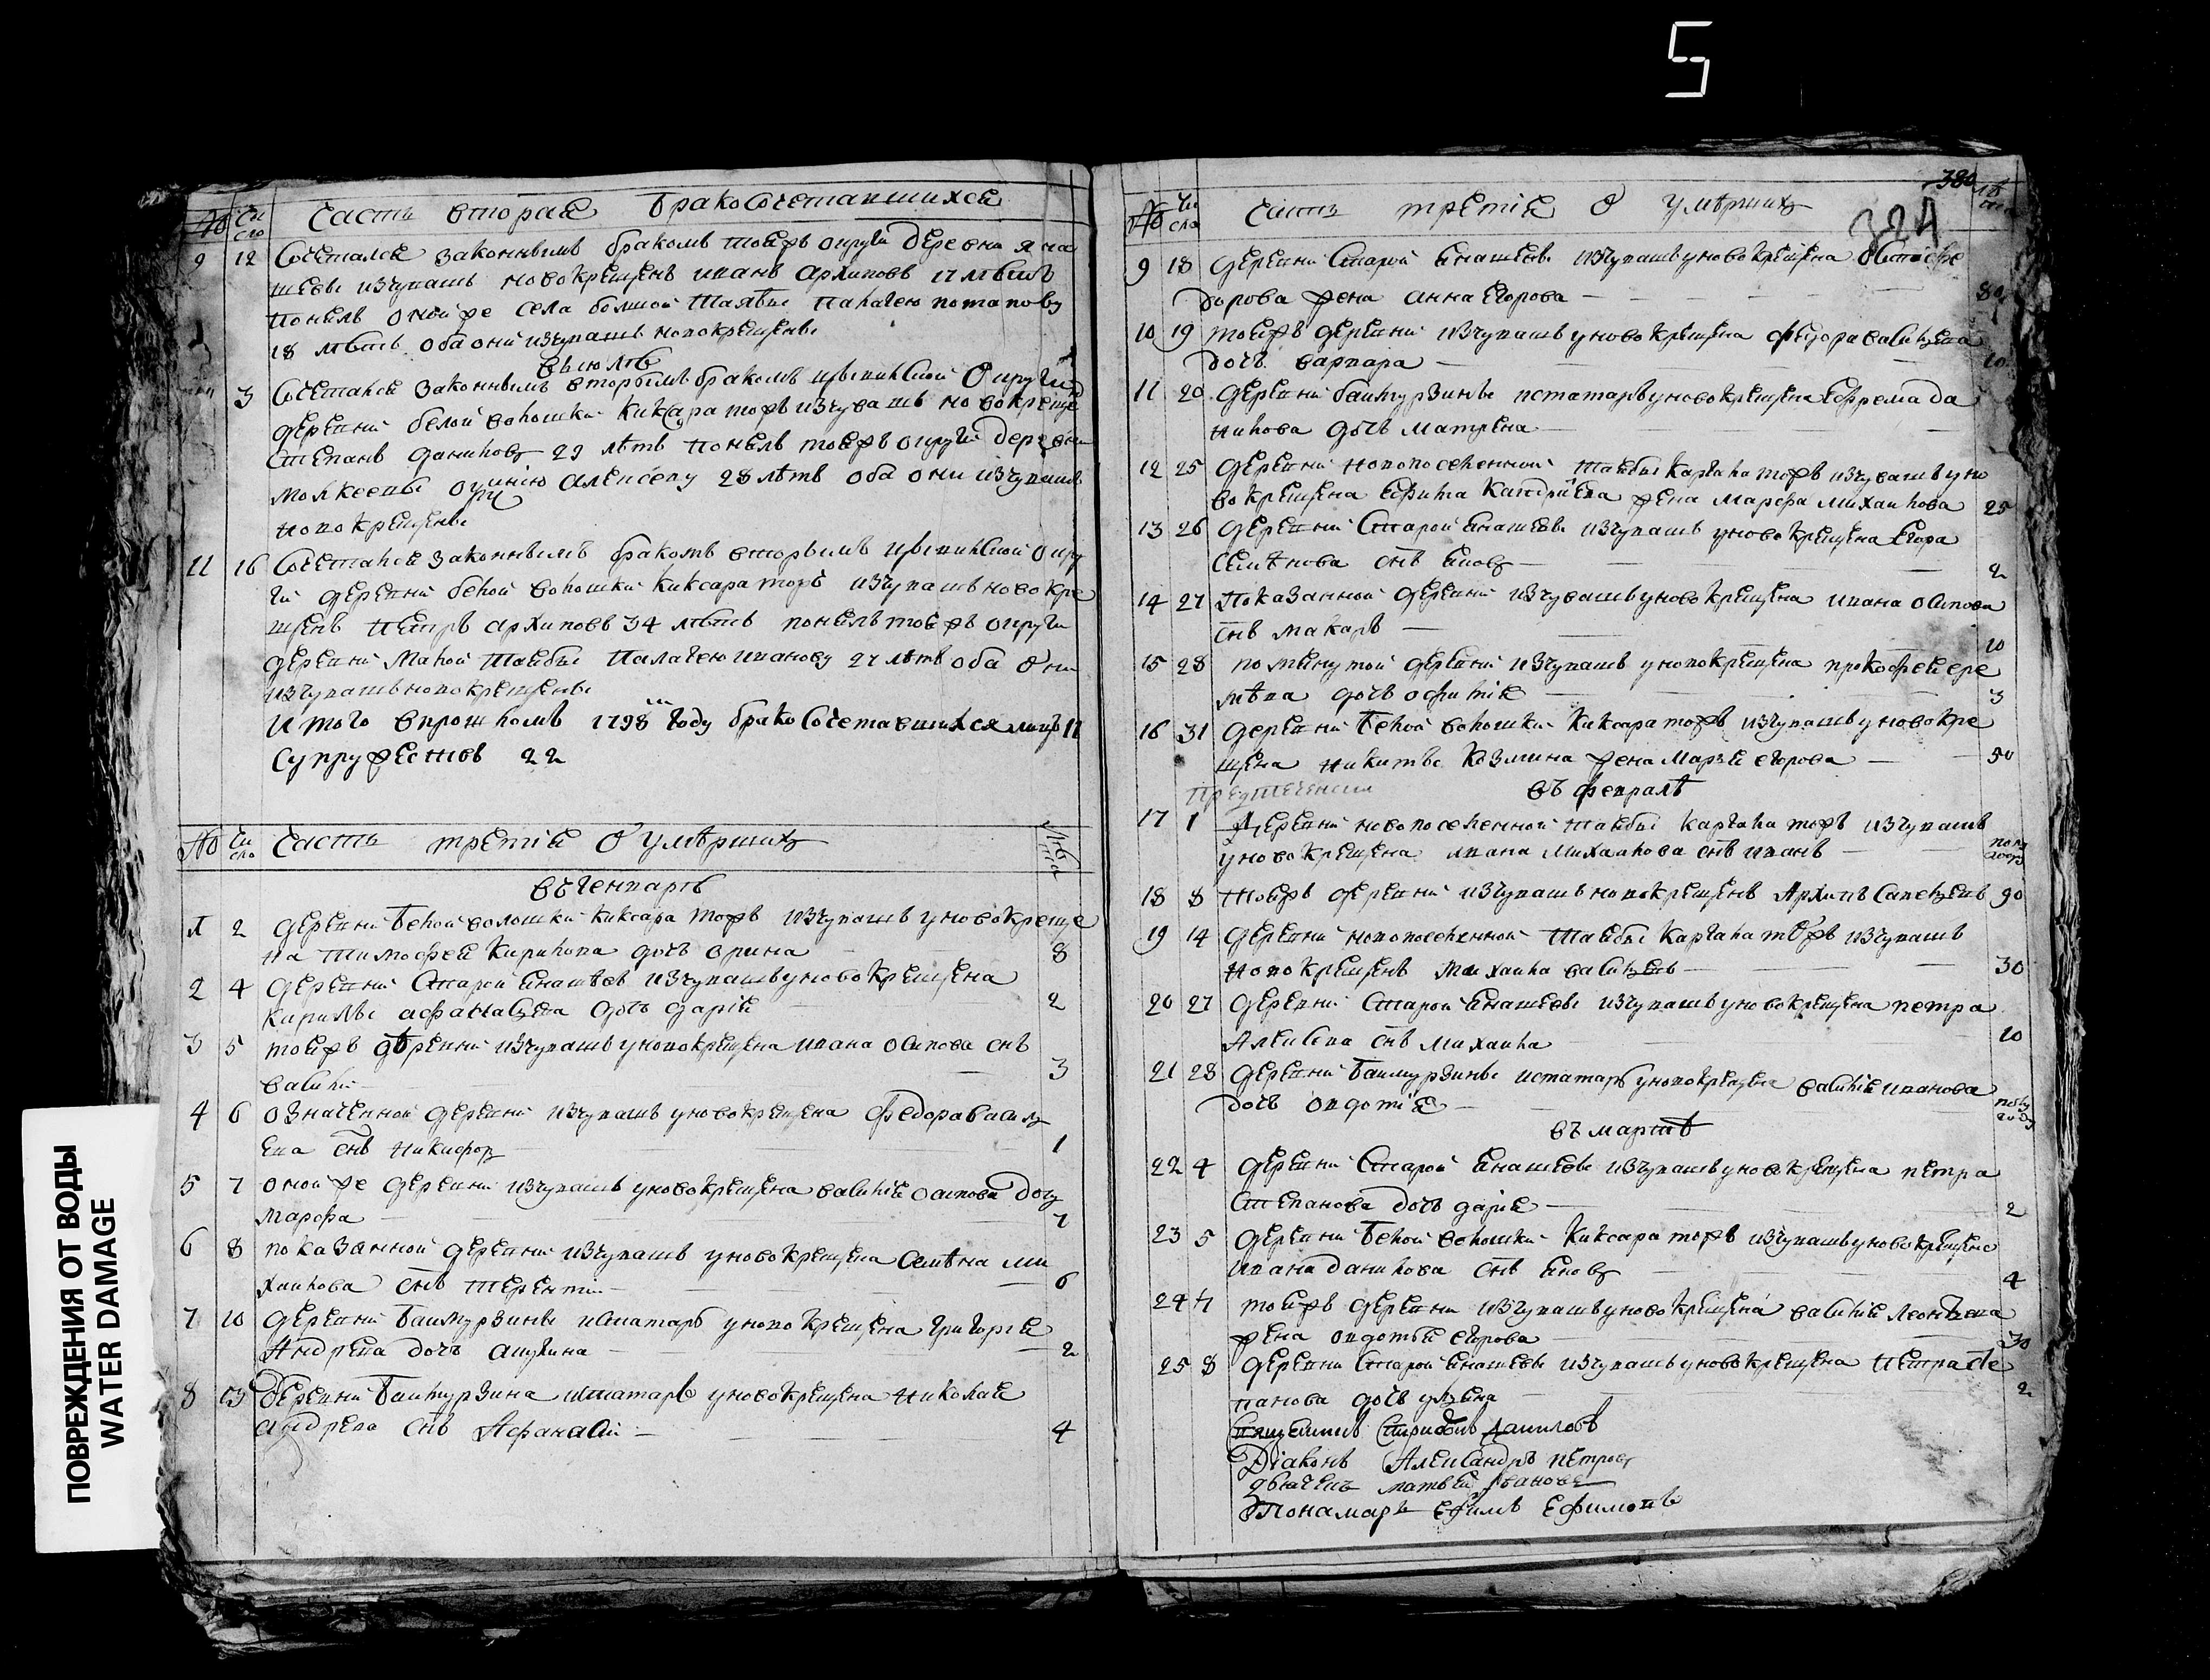 5
ПОВРЕЖДЕНИЯ ОТ ВОДЫ
WATER DAMAGE
№ Чи сло Часть вторая бракосочетавшихся
9 12 Сочетался законнымъ бракомъ тоежъ округи деревни яна
шевы изчувашъ новокрещенъ иванъ архиповъ 17 лѣтъ
понелъ оной же села болшой таябы палагею потапову
18 лѣтъ оба они изчувашъ новокрещены
въ июлѣ
3 Сочетался законнымъ вторымъ бракомъ цывилской округи
деревни белой волошки киксара тожъ изчувашъ новокреще
Степанъ даниловъ 29 лѣтъ понелъ тоежъ округи деревни
алексеву 28 лѣтъ оба они изчувашъ
новокрещены
11 16 Сочетался законнымъ бракомъ вторымъ цывилской окру
ги деревни белой волошки киксара тожъ изчувашъ новокре
щенъ петръ архиповъ 34 лѣтъ понелъ тоежъ округи
деревни малой таябы палагею иванову 27 лѣтъ оба они
изчувашъ новокрещены
Итого впрошломъ 1798 году бракосочетавшихся лицъ 11
супружестовъ 22
№ Чи сло Часть третия о умѣрших лѣ та
въ генварѣ
1 2 деревни белой волошки киксара тожъ изчувашъ у новокреще
на тимофея кирилова дочь орина 8
2 4 деревни старой янашевъ изчувашъ у новокрещена
кирилы афанасева дочь дария 2
3 5 тоежъ деревни изчувашъ у новокрещена ивана осипова снъ
василий 3
4 6 означенной деревни изчувашъ у новокрещена федора василь
ева снъ никифор 1
5 7 оной же деревни изчувашъ у новокрещена василия осипова дочь
марфа 7
6 8 показанной деревни изчувашъ у новокрещена семѣна ми
хаилова снъ терентий 6
7 10 деревни баимурзины исътатаръ у новокрещена григория
андрева дочь акулина 2
8 деревни баимурзина исътатаръ у новокрещена николая
андрева снъ афанасий 4
№ Чи сла Часть третия о умѣрших 380 лѣ
324
9 18 деревни старой янашевы изчувашъ у новокрещена
дорова жена анна егорова 80
10 19 тоежъ деревни изчувашъ у новокрещена федора василева
дочь варвара 10
11 20 деревни баимурзины истатаръ у новокрещена ефрема да
нилова дочь матрена
12 25 деревни новопоселенной таябы каргала тожъ изчувашъ у но
вокрещена жена марфа михаилова 25
13 26 деревни старой янашевы изчувашъ у новокрещена егора
семѣнова снъ яков 2
14 27 показанной деревни изчувашъ у новокрещена ивана осипова
снъ макаръ 10
15 28 помянутой деревни изчувашъ у новокрещена прокофея ере
мѣва дочь офимия 3
16 31 деревни белой волошки киксара тожъ изчувашъ у новокре
щена никиты козмина жена марья егорова 50
въ февралѣ
17 1 деревни новопоселенной таябы каргала тожъ изчувашъ
у новокрещена ивана михаилова снъ иванъ полу году
18 8 тоежъ деревни изчувашъ новокрещенъ архипъ савельевъ 90
19 14 деревни новопоселенной таябы каргала тожъ изчувашъ
новокрещенъ михаила василевъ 30
20 27 деревни старой янашевы изчувашъ у новокрещена петра
алексева снъ михаила 10
21 28 деревни баимурзины истатаръ у новокрещена василия иванова
дочь овдотия полу году
въ мартѣ
22 4 деревни старой янашевы изчувашъ у новокрещена петра
степанова дочь дария 2
23 5 деревни белой волошки киксара тожъ изчувашъ у новокрещена
ивана данилова снъ яков 4
24 7 тоежъ деревни изчувашъ у новокрещена василия леонтева
жена овдотья егорова 30
25 8 деревни старой янашевы изчувашъ у новокрещена петра сте
панова дочь улена 2
Священникъ Спиридонъ Даниловъ
Диаконъ Александръ Петровъ
дьячекъ матвей Ивановъ
Пономарь Ефимъ Ефимовъ